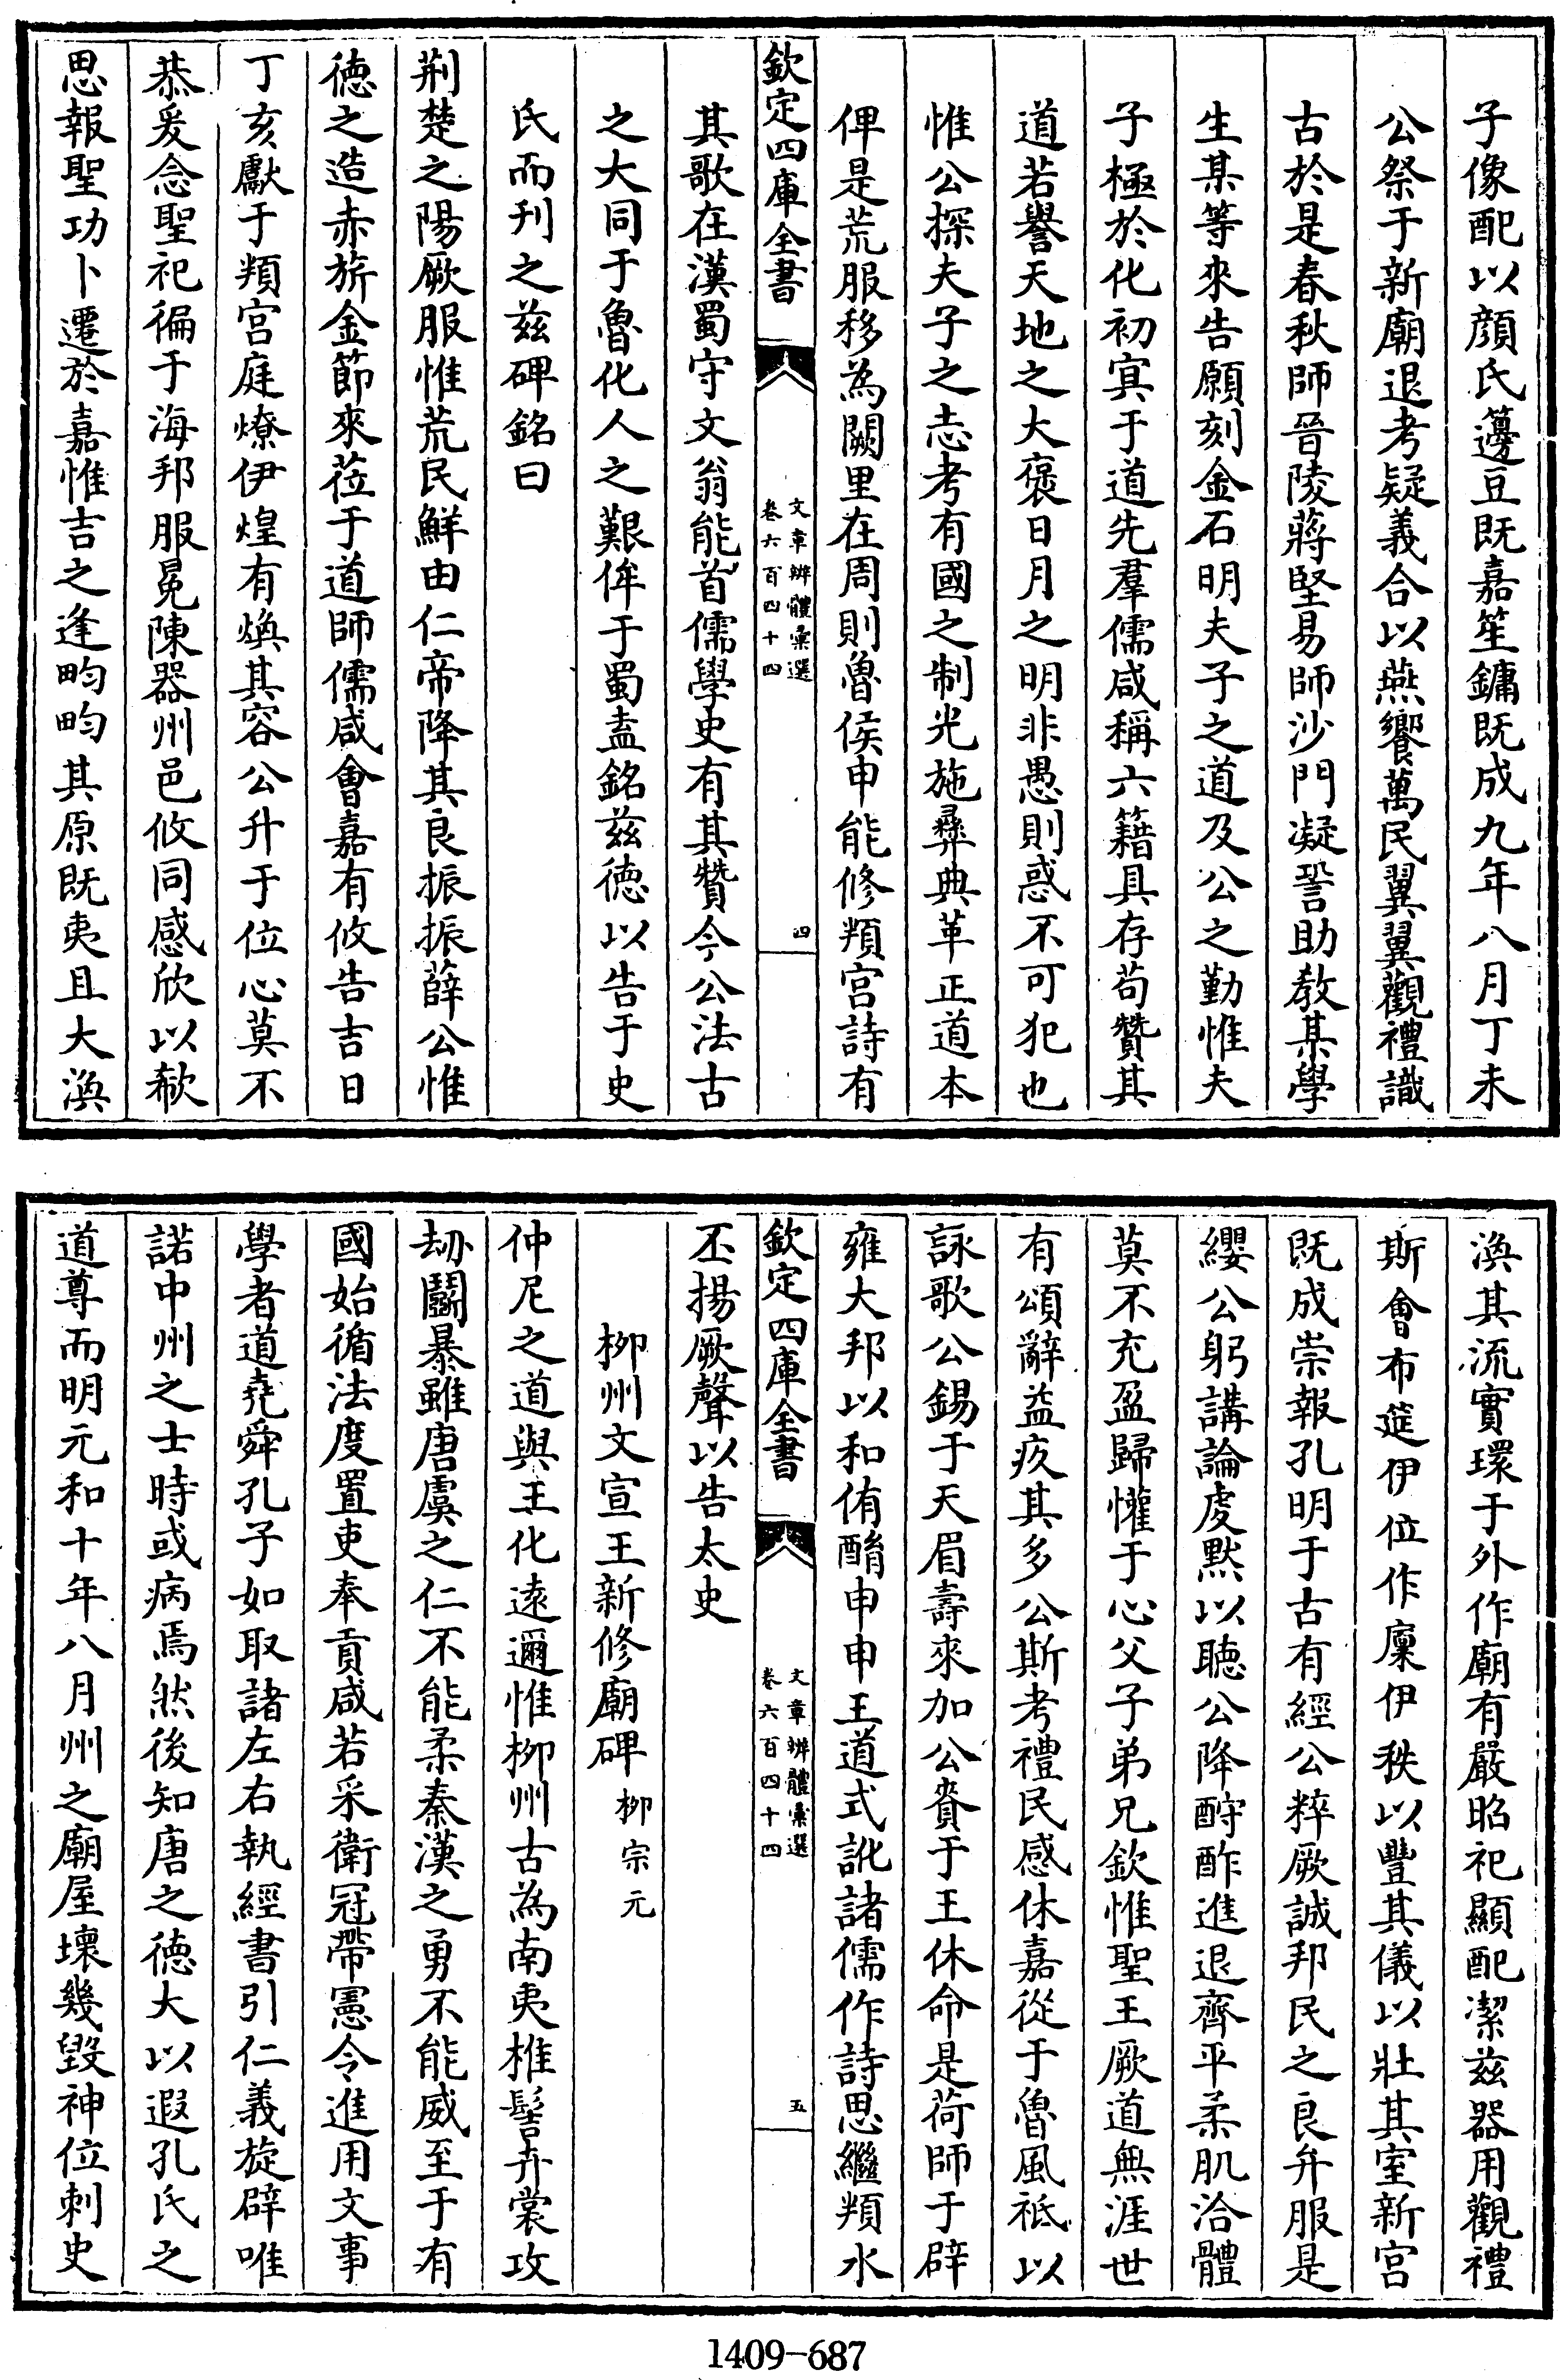 子像配以顔氏籩豆既嘉笙鏞既成九年八月丁未
公祭于新廟退考疑義合以燕饗萬民翼翼觀禮識
古於是春秋師晉陵蔣堅易師沙門凝䛒助教某學
生某等來告願刻金石明夫子之道及公之勤惟夫
子極於化初冥于道先羣儒咸稱六籍具存苟贊其
道若譽天地之大褒日月之明非愚則惑不可犯也
惟公探夫子之志考有國之制光施彞典革正道本
俾是荒服移為闕里在周則魯侯申能修頖宫詩有
欽定四庫全書
文章辨體彚選
卷六百四十四
四
其歌在漢蜀守文翁能首儒學史有其贊今公法古
之大同于魯化人之艱侔于蜀盍銘兹徳以告于史
氏而刋之兹碑銘曰
荆楚之陽厥服惟荒民鮮由仁帝降其良振振薛公惟
徳之造赤旂金節來莅于道師儒咸會嘉有攸告吉日
丁亥獻于頖宫庭燎伊煌有煥其容公升于位心莫不
恭爰念聖祀徧于海邦服冕陳器州邑攸同感欣以欷
思報聖功卜遷於嘉惟吉之逢畇畇其原既夷且大渙
渙其流實環于外作廟有嚴昭祀顯配潔兹器用觀禮
斯會布筵伊位作廩伊秩以豐其儀以壯其室新宫
既成崇報孔明于古有經公粹厥誠邦民之良弁服是
纓公躬講論䖍黙以聽公降酧酢進退齊平柔肌洽體
莫不充盈歸懽于心父子弟兄欽惟聖王厥道無涯世
有頌辭益疚其多公斯考禮民感休嘉從于魯風祗以
詠歌公錫于天眉壽來加公賚于王休命是荷師于辟
雍大邦以和侑酳申申王道式訛諸儒作詩思繼頖水
欽定四庫全書
文章辨體彚選
卷六百四十四
五
丕揚厥聲以告太史
柳州文宣王新修廟碑 柳宗元
仲尼之道與王化逺邇惟柳州古為南夷椎髻卉裳攻
刼鬭暴雖唐虞之仁不能柔秦漢之勇不能威至于有
國始循法度置吏奉貢咸若采衛冠帶憲令進用文事
學者道堯舜孔子如取諸左右執經書引仁義旋辟唯
諾中州之士時或病焉然後知唐之徳大以遐孔氏之
道尊而明元和十年八月州之廟屋壞幾毀神位刺史
1409-687